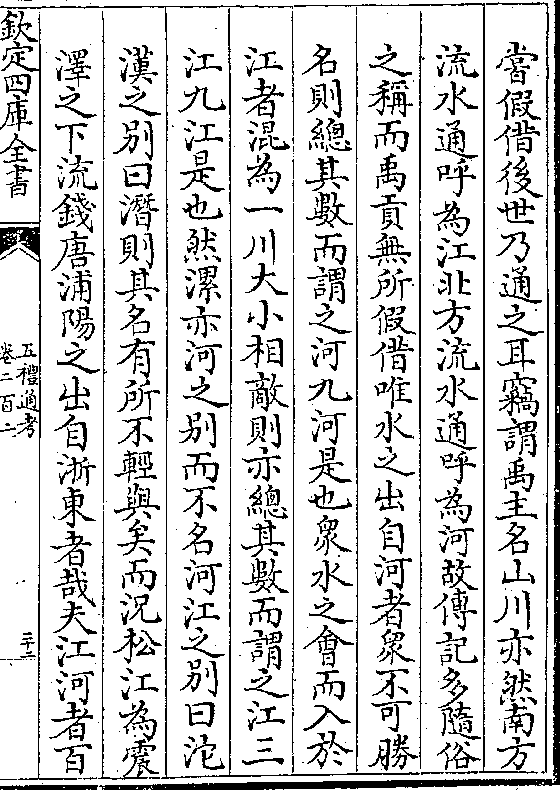 嘗假借後世乃通之耳竊謂禹主名山川亦然南方
流水通呼為江北方流水通呼為河故傳記多隨俗
之稱而禹貢無所假借唯水之出自河者衆不可勝
名則總其數而謂之河九河是也衆水之會而入於
江者混為一川大小相敵則亦總其數而謂之江三
江九江是也然漯亦河之别而不名河江之别曰沱
漢之别曰潛則其名有所不輕與矣而況松江為震
澤之下流錢唐浦陽之出自浙東者哉夫江河者百
欽定四庫全書
五禮通考
卷二百二
三十二